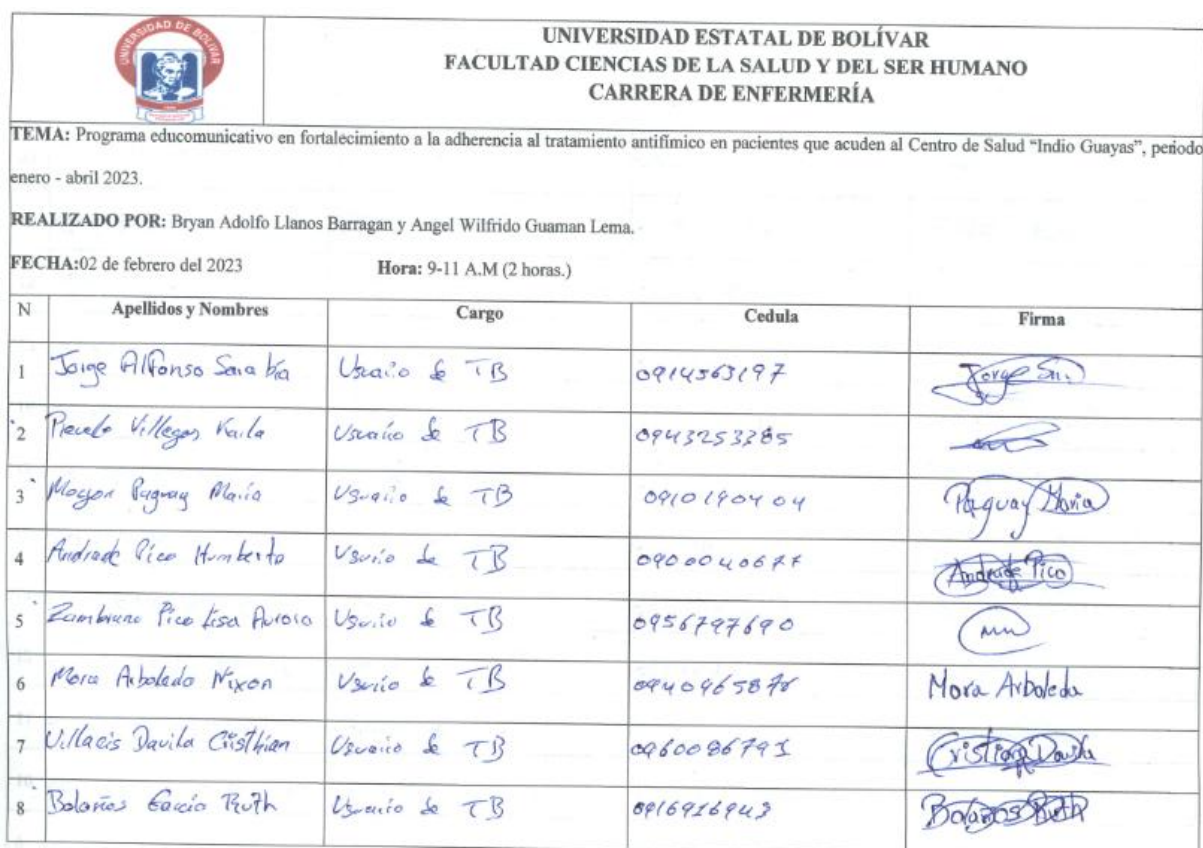 UNIVERSIDAD DE BOLIVAR
UNIVERSIDAD ESTATAL DE BOLÍVAR
FACULTAD CIENCIAS DE LA SALUD Y DEL SER HUMANO
CARRERA DE ENFERMERÍA
TEMA: Programa educomunicativo en fortalecimiento a la adherencia al tratamiento antifímico en pacientes que acuden al Centro de Salud “Indio Guayas”, periodo
enero - abril 2023.
REALIZADO POR: Bryan Adolfo Llanos Barragan y Angel Wilfrido Guaman Lema.
FECHA:02 de febrero del 2023 Hora: 9-11 A.M (2 horas.)
N Apellidos y Nombres Cargo Cedula Firma
1 Jorge Alfonso Sarabia Usuario de TB 0914563197 Jorge
2 Villegas Karla Usuario de TB 0943253385
3 Paguay Maria Usuario de TB 0910190404 Paguay Maria
4 Andrade Pico Humberto Usuario de TB Andrade Pico
5 Zambrano Pico Aurora Usuario de TB 0956797690
6 Mora Arboleda Nixon Usuario de TB Mora Arboleda
7 Villacis Davila Cristhian Usuario de TB Cristian Davila
8 Bolaños García Ruth Usuario de TB 0916916943 Bolaños Ruth